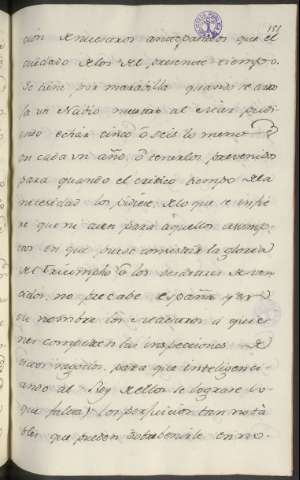 151
cion de nuestros antepasados que el
cuidado de los del presente tiempo.
Se tiene por marabilla quando se arro
ja un Navio nuebo al Mar pudi
endo echar cinco ò seis lo menos
en cada un año, ò tenerlos prevenidos
para quando el critico tiempo de la
necesidad los pidiese, de lo que se infie
re que ni aun para aquellos asump
tos en que puese consistir la gloria
del Triumpho ò los desdoros de ven
cidos, no precabe españa y en
su nombre los Ministros à quie
nes competen las inspecciones de
estos negocios, para que inteligenci
ando al Rey de ellos se lograse lo
que falta, los perjuicios tan nota
bles que pueden sobrebenirle en no